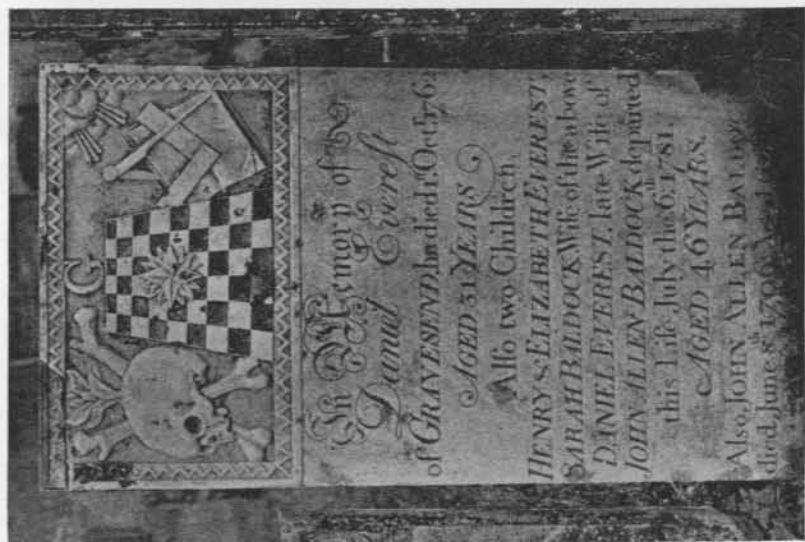 G
In Memory of
Daniel Evereſt
of GRAVESEND, he died 1ſt Octr. 1762
AGED 31 YEARS
Alſo two Children,
HENRY & ELIZABETH EVEREST,
SARAH BALDOCK Wife of the above
DANIEL EVEREST, late Wife of
JOHN ALLEN BALDOCK departed
this Life July the 6th. 1781.
AGED 46 YEARS.
Also, JOHN ALLEN BALDOCK
died, June 8th